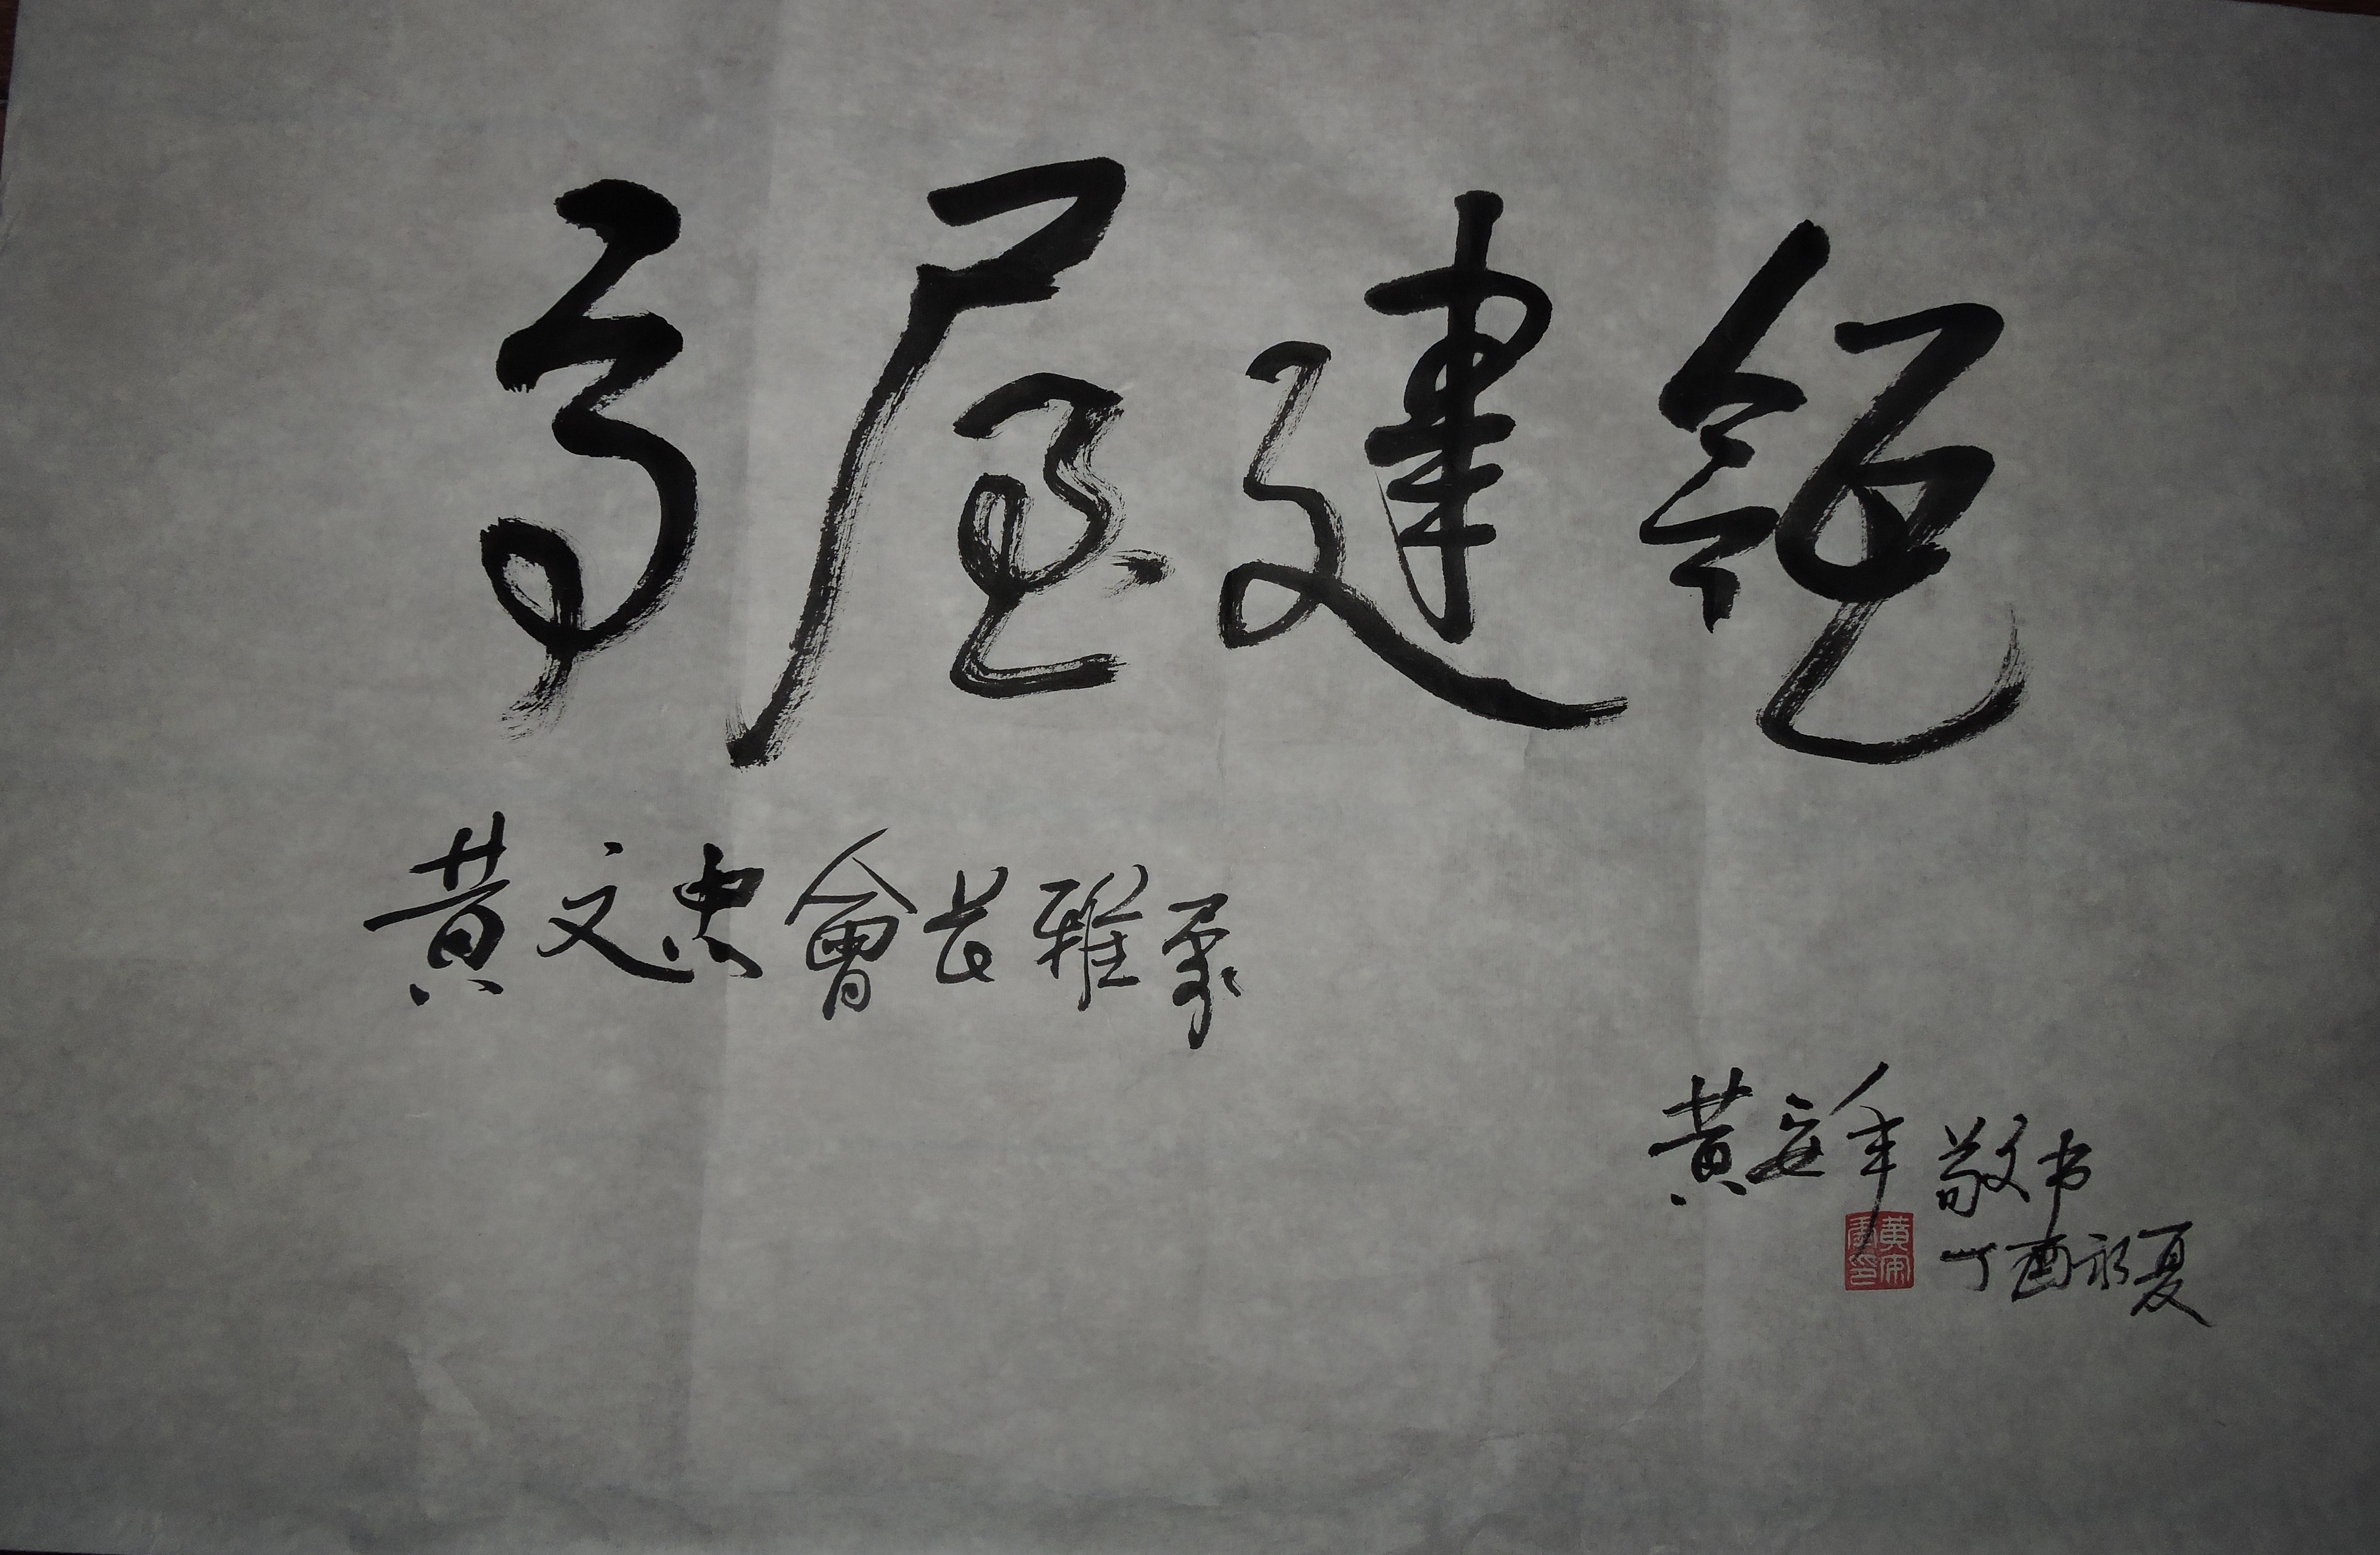 高屋建瓴
黄文忠會长雅屬
黄安年
敬书
丁酉初夏
黄安年印